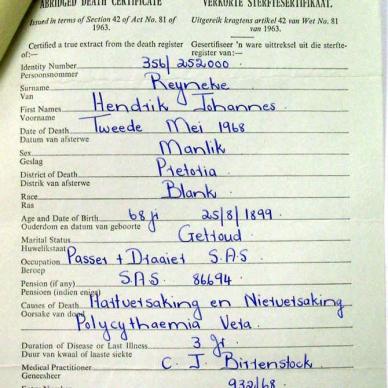 ABRIDGED DEATH CERTIFICATE VERKORTE STERFTESERTIFIKAAT.
Issued in terms of Section 42 of Act No. 81 of 1963. Uitgereik kragtens artikel 42 van Wet No. 81 van 1963.
Certified a true extract from the death register of:— Gesertifiseer 'n ware uittreksel uit die sterfteregister van:—
Identity Number 356/252000
Persoonsnommer
Surname Reyneke
Van
First Names Hendrik Johannes
Voorname
Date of Death Tweede Mei 1968
Datum van afsterwe
Sex Manlik
Geslag
District of Death Pretoria
Distrik van afsterwe
Race Blank
Ras
Age and Date of Birth 68 jr 25/8/1899
Ouderdom en datum van geboorte
Marital Status Getroud
Huwelikstaat
Occupation Passer + Draaier S.A.S
Beroep
Pension (if any) S.A.S. 86694
Pensioen (indien enige)
Causes of Death Hartversaking en Nierversaking
Oorsake van dood Polycythaemia Vera
Duration of Disease or Last Illness 3 Jr
Duur van kwaal of laaste siekte
Medical Practitioner C. J. Birrenstock
Geneesheer
932/68